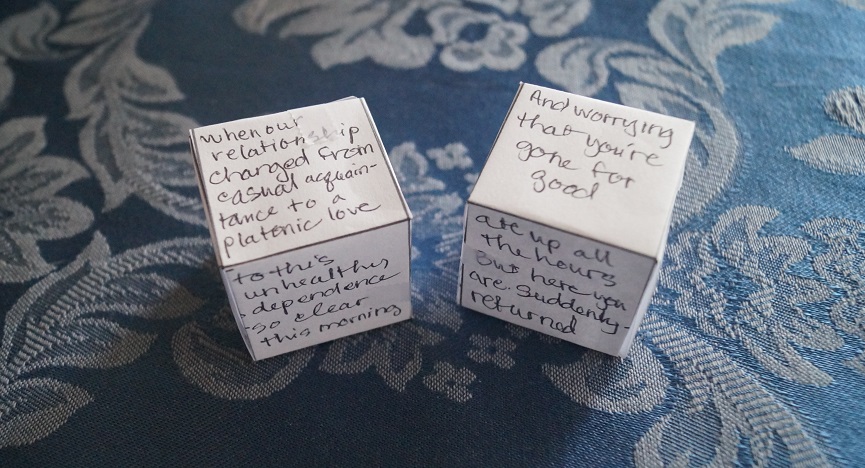 when our
relationship
changed from
casual acquain-
tance to a
platonic love
to this
unhealthy
dependence
so clear
this morning
And worrying
that you're
gone for
good
ate up all
the hours
But here you
are suddenly
returned